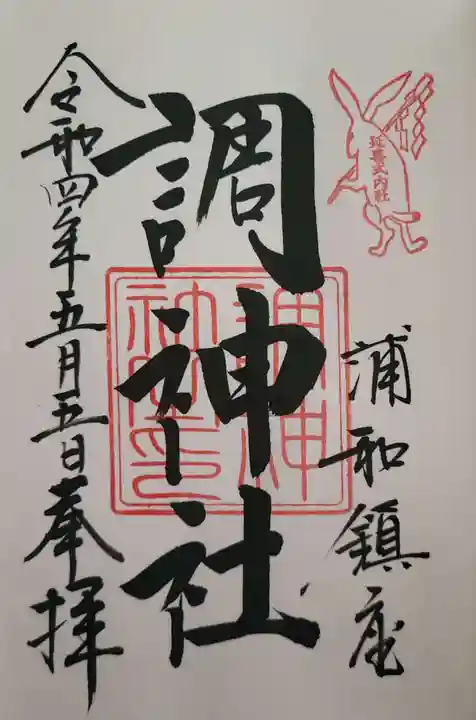 延喜式内社
浦和鎮座
調神社
調神
社之印
令和四年五月五日奉拝